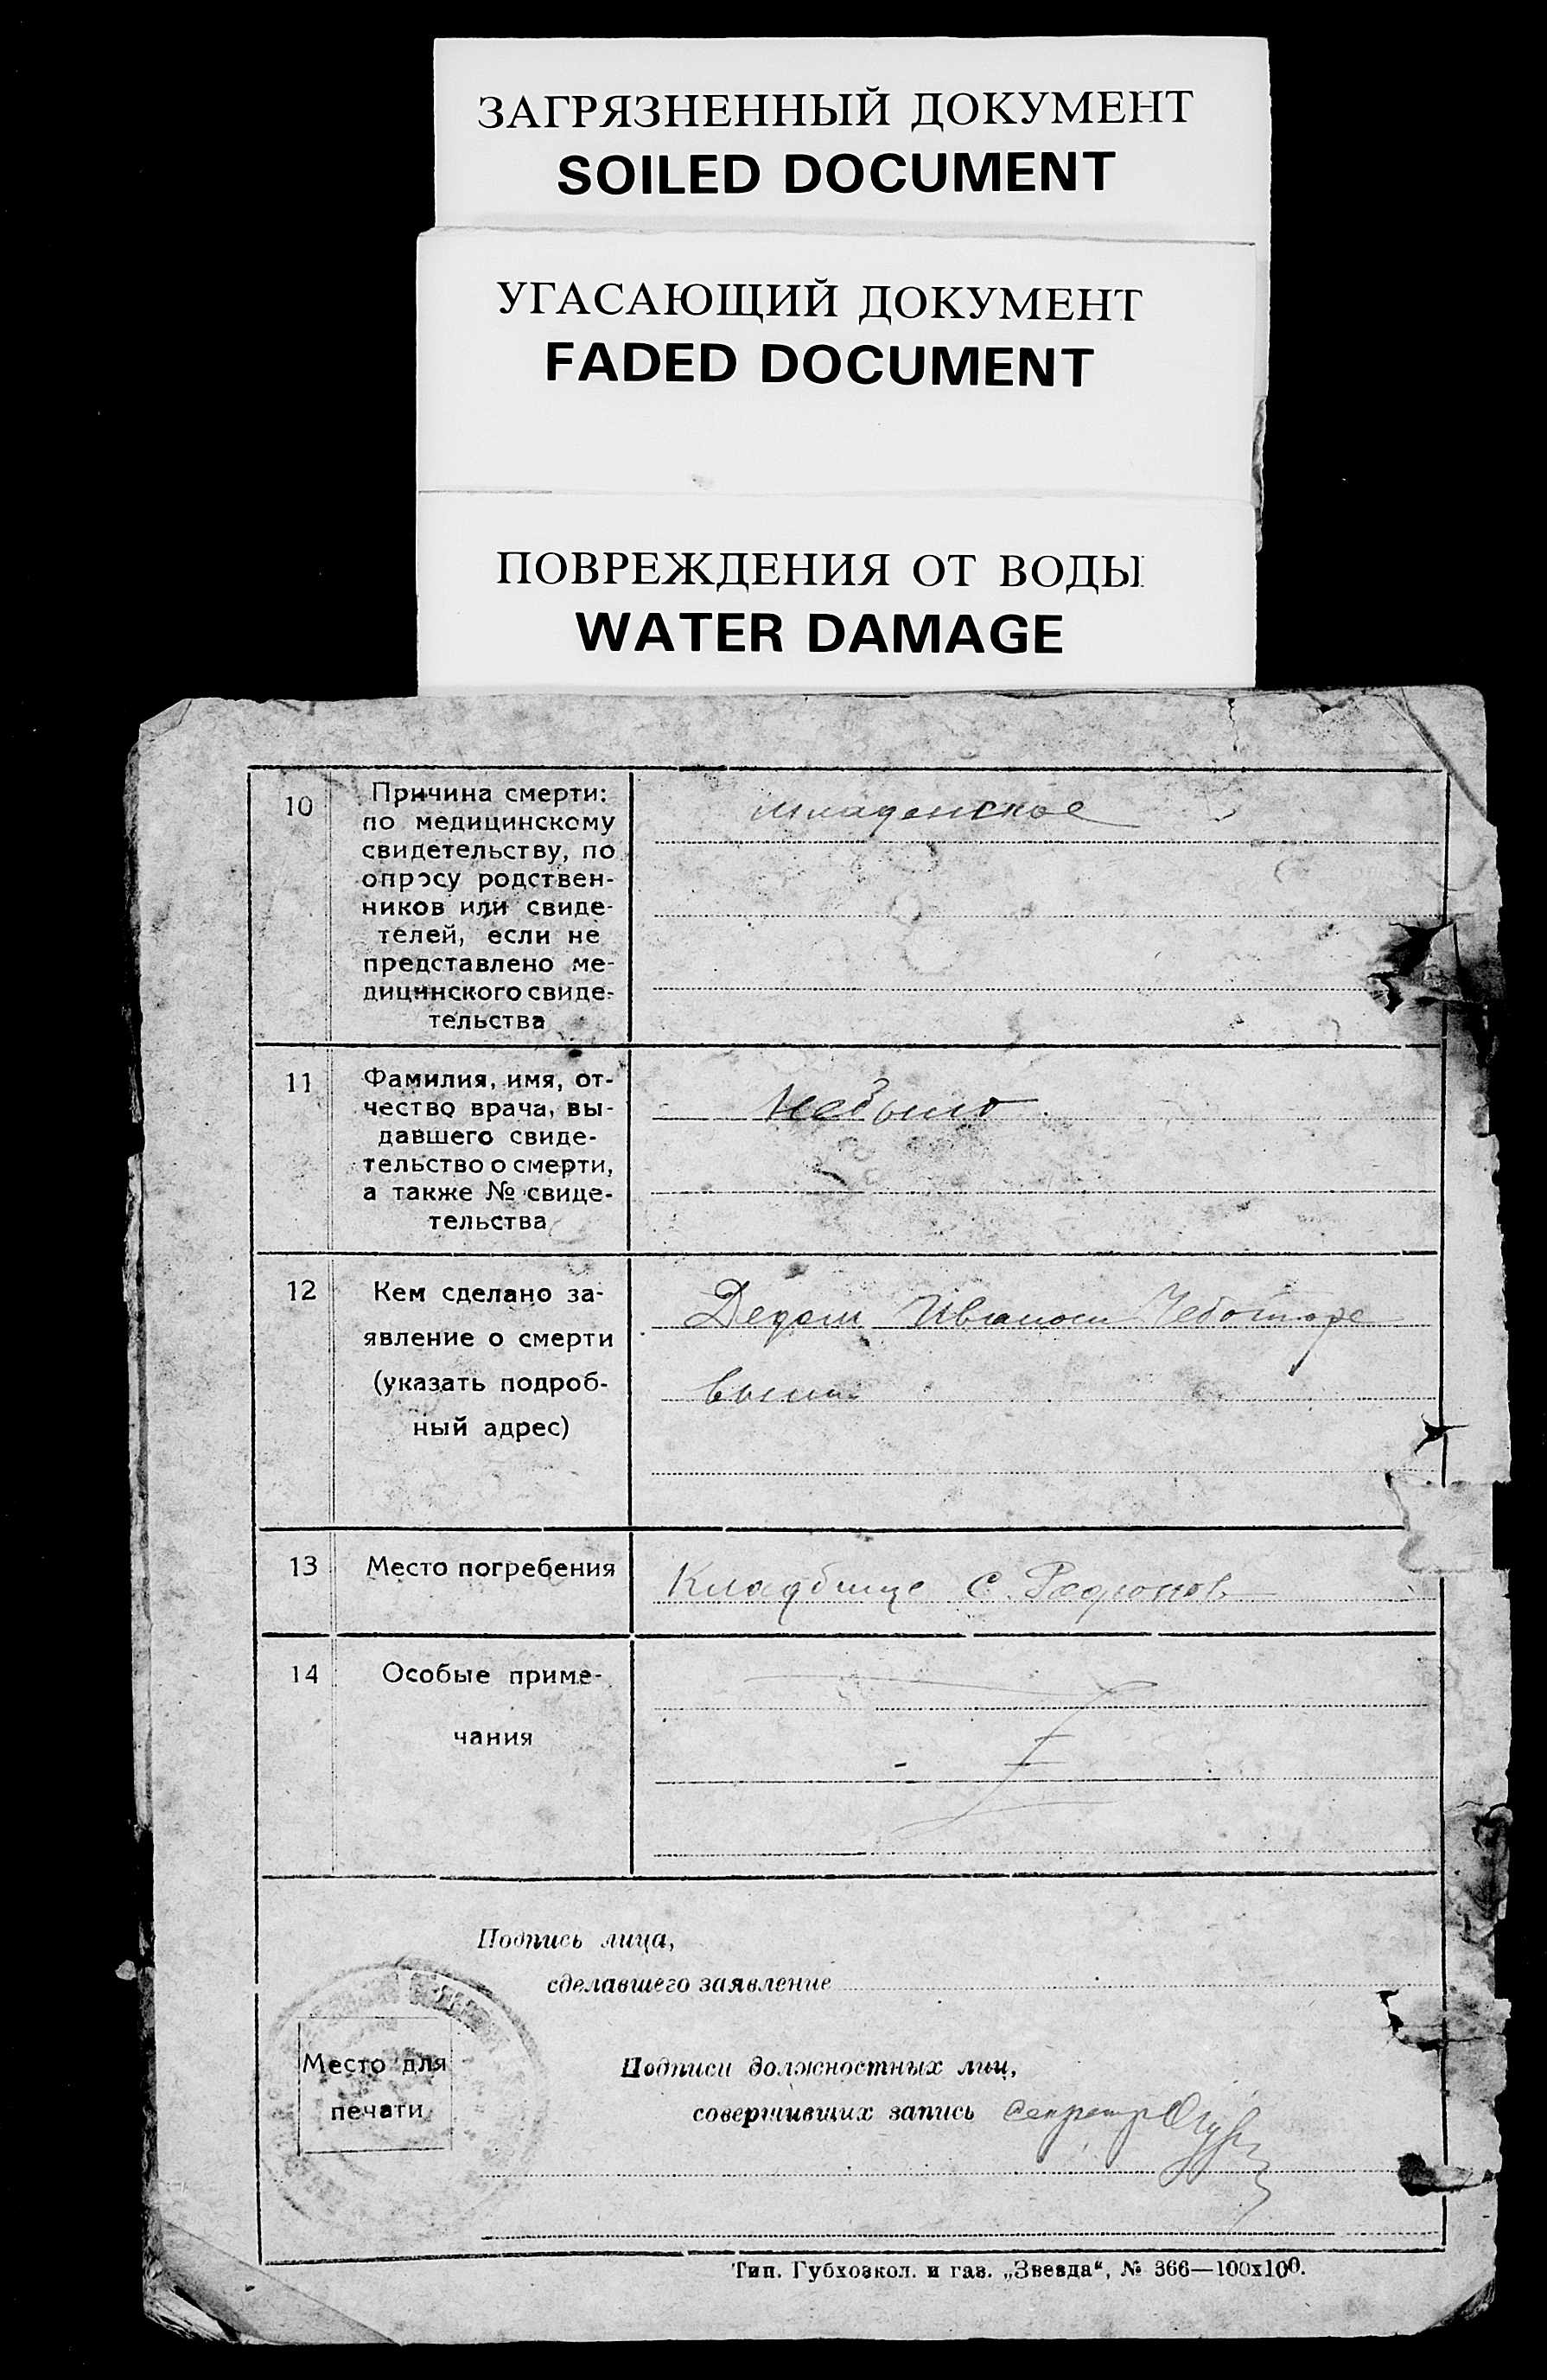 ЗАГРЯЗНЕННЫЙ ДОКУМЕНТ
SOILED DOCUMENT
УГАСАЮЩИЙ ДОКУМЕНТ
FADED DOCUMENT
ПОВРЕЖДЕНИЯ ОТ ВОДЫ
WATER DAMAGE
10
Причина смерти:
по медицинскому
свидетельству, по
опросу родствен-
ников или свиде-
телей, если не
представлено ме-
дицинского свиде-
тельства
младенское
11
Фамилия, имя, от-
чество врача, вы-
давшего свиде-
тельство о смерти,
а также № свиде-
тельства
небыло
12
Кем сделано за-
явление о смерти
(указать подроб-
ный адрес)
Дедом Иваном Чеботаре
вым
13
Место погребения
Кладбище С.
14
Особые приме-
чания
Подпись лица,
сделавшего заявление
Место для
печати
Подписи должностных лиц,
совершивших запись Секретар
Тип. Губхозкол. и газ. „Звезда“, № 366—100х100.